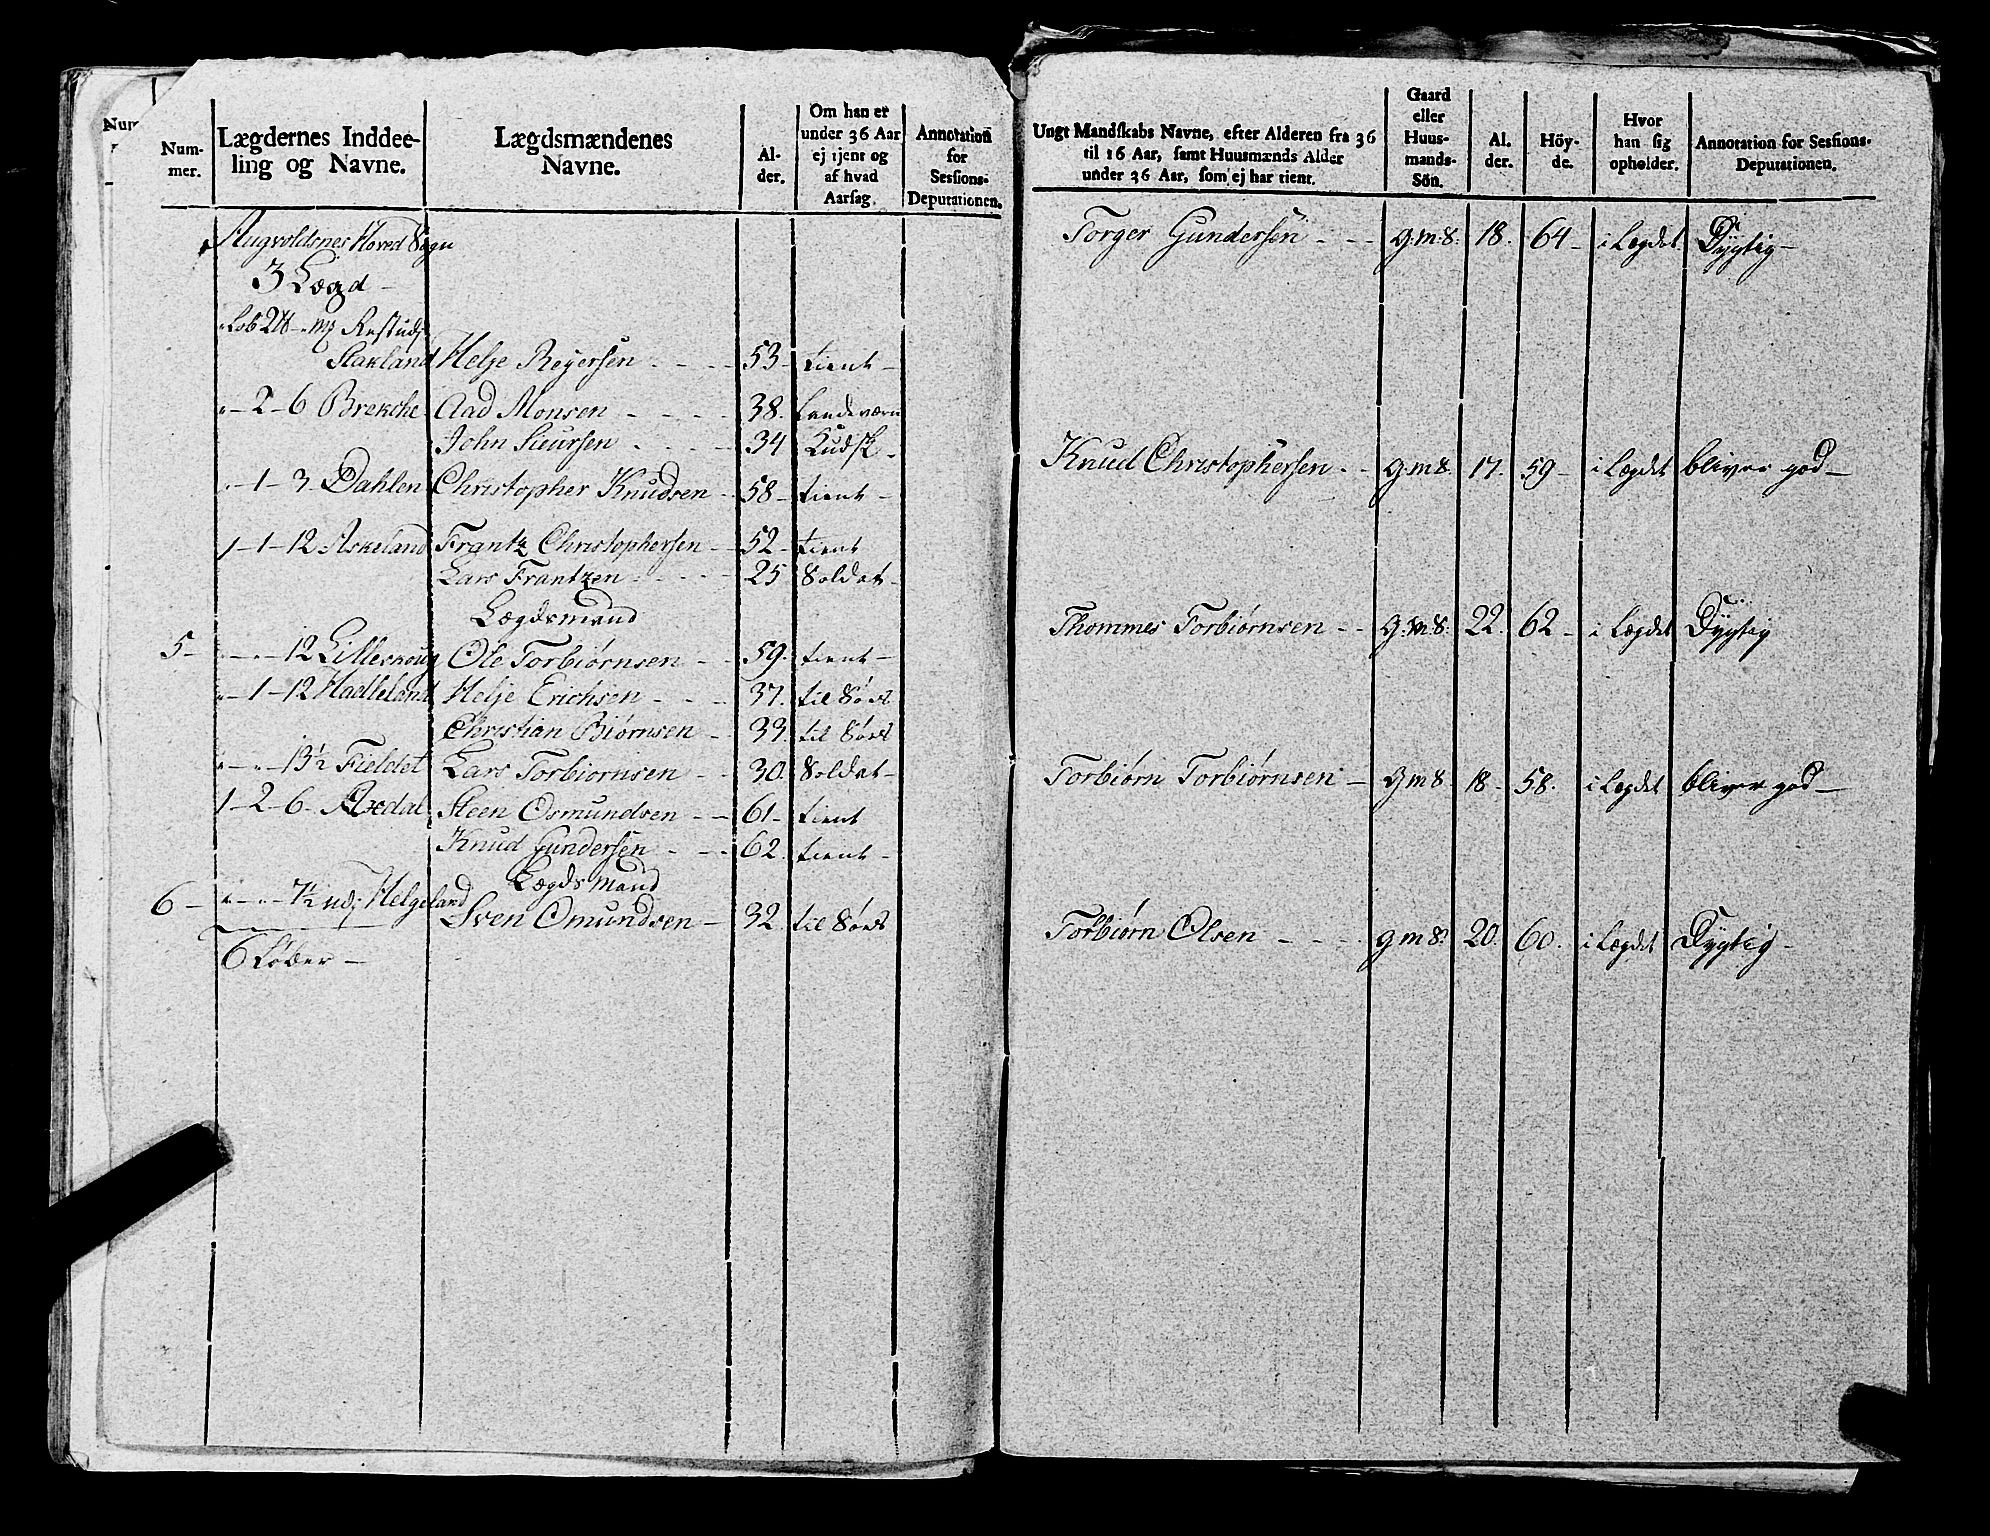 Num-
mer.
Lægdernes Inddee-
ling og Navne.
Lægdsmændenes
Navne.
Al-
der.
Om han er
under 36 Aar
ej tjent og
af hvad
Aarsag.
Annotation
for
Sessions-
Deputationen.
Augvoldsnes Hoved Sogn
3 Lægd -
Løb
Stakland Helje Reyersen - - - 53 - tient -
- 2 - 6 Brekche Aad Monsen - - - 38. Landeværn
John Siursen - - - 34 Kudsk -
- 1 - 3 - Dahlen Christopher Knudsen - - 58 - tient -
1 - 1 - 12 Askeland Frantz Christophersen - 52 - tient
Lars Frantzen - - - 25 Soldat -
Lægdsmand
5 - - - 12 Lilleskoug Ole Torbiørnsen - - 59. tient -
- 1 - 12 Hadleland Helje Erichsen - - - 37. til Søes
Christian Biørnsen - 39. til Søes
- - 13½ Fieldet Lars Torbiornsen - - 30. Soldat -
1 - 2 - 6 - Axdal Steen Osmundsen - - 61 - tient
Knud Gundersen - - - 62. tient -
Lægds Mand
6 - - - 7½ Helgeland Sven Omundsen - 32. til Søes
6 Løber -
Ungt Mandskabs Navne, efter Alderen fra 36
til 16 Aar, samt Huusmænds Alder
under 36 Aar, som ej har tient.
Gaard
eller
Huus-
mands-
Sön.
Al.
der.
Höy-
de.
Hvor
han sig
opholder.
Annotation for Sessions-
Deputationen.
Torger Gundersen - - - g:m:s. 18. 64 - i Lægdet Dygtig -
Knud Christophersen - - g:m s. 17. 59 - i Lægdet bliver god -
Thommes Torbiørnsen - - g:m:s: 22. 62 - i Lægdet Dygtig
Torbiørn Torbiørnsen - g m s 18 - 58. i Lægdet bliver god -
Torbiørn Olsen - - - g m s: 20. 60. i Lægdet Dygtig -